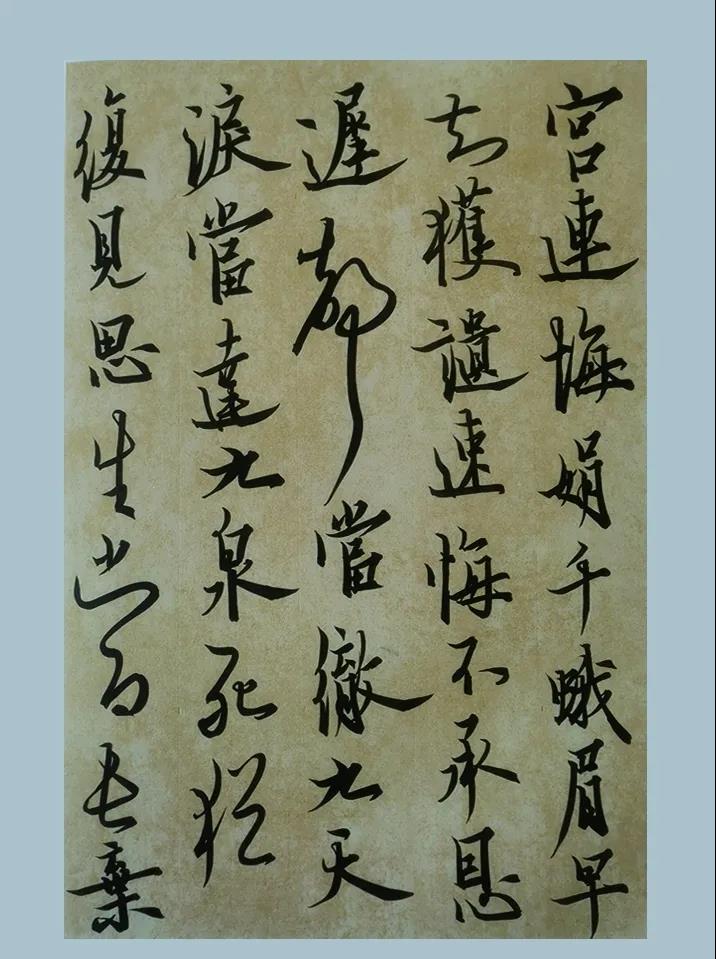 宮連悔娟千蛾眉早
知獲譴速悔不承恩
遲聲當徹九天
淚當達九泉死猶
復見思生當長棄